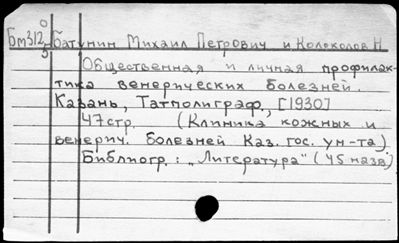 Бм312
Батунин Михаил Петрович и Колоколов Н
Общественная и личная профилак-
тика венерических болезней.
Казань, Татполиграф, [1930]
47стр. (Клиника кожных и
венерич. болезней Каз. гос. ун-та)
Библиогр.: „Литература" (45 назв)